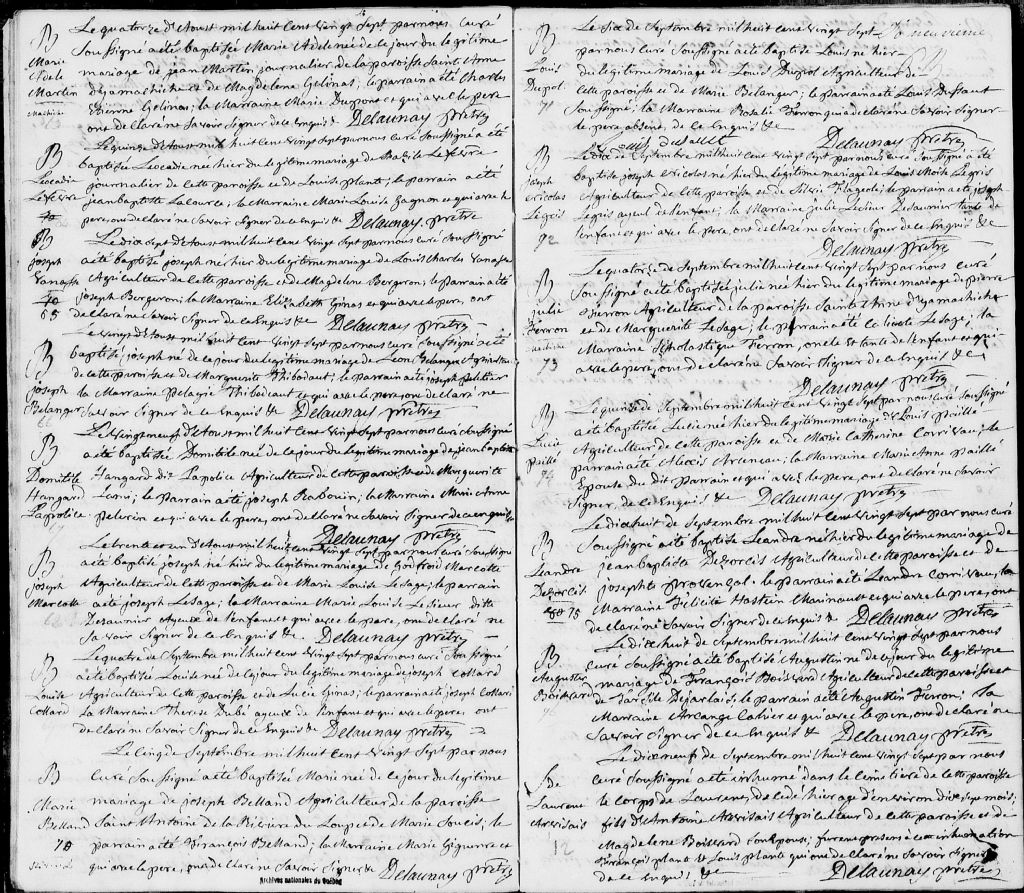 B
Marie
Adele
Martin
Machiche
Le quatorze d'Aoust mil huit Cent Vingt Sept par nous curé
Soussigné a été baptisée Marie Adele née de ce jour du legitime
mariage de jean Martin journalier de la paroisse Saint Anne
d'yamachiche et de Magdelene Gelinas; le parrain a été Charles
Etienne Gelinas; la Marraine Marie Dupone et qui avec le pere
ont declaré ne Savoir Signer de ce Enquis &c Delaunay prêtre
B
Leocadie
Lefevre
Le quinze d'Aoust mil huit Cent Vingt Sept par nous Curé Soussigné a été
baptisée Leocadie née hier du legitime mariage de Basile Lefevre
journalier de cette paroisse et de Louise plante; le parrain a été
jean baptiste Lacource; la Marraine Marie Louise Gagnon et qui avec le
pere, ont declaré ne Savoir Signer de ce Enquis &c Delaunay prêtre
B
Joseph
Vanasse
65
Le dix Sept d'Aoust mil huit Cent Vingt Sept par nous curé Soussigné
a été baptisé joseph né hier du legitime mariage de Louis Charles Vanasse
Agriculteur de cette paroisse et de Magdeline Bergeron; le parrain a été
joseph Bergeron; la Marraine Elizabeth Ginas et qui avec le pere, ont
declaré ne Savoir Signer de ce Enquis &c Delaunay prêtre
B
joseph
Belanger
66
Le Vingt d'Aoust mil huit Cent Vingt Sept par nous curé Soussigné a été
baptisé joseph né de ce jour du legitime mariage de Leon Belanger Agriculteur
de cette paroisse et de Marguerite Thibodaut; le parrain a été joseph pelletier
la Marraine Pelagie Thibodaut et qui avec le pere, ont declaré ne
Savoir Signer de ce Enquis &c Delaunay prêtre
B
Domitile
Hangard
Lapolice
Le Vingt neuf d'Aoust mil huit Cent Vingt Sept par nous curé Soussigné
a été baptisée Domitile née de ce jour du legitime mariage de jean baptiste
Hangard dit Lapolice Agriculteur de cette paroisse et de Marguerite
le parrain a été joseph Rabouin; la Marraine Marie Anne
pelerin et qui avec le pere, ont declaré ne Savoir Signer de ce enquis &c
Delaunay prêtre
B
joseph
Marcotte
Le trente et un d'Aoust mil huit Cent Vingt Sept par nous curé Soussigné
a été baptisé joseph né hier du legitime mariage de Godfroid Marcotte
Agriculteur de cette paroisse et de Marie Louise Lesage; le parrain
a été joseph Lesage; la Marraine Marie Louise Lesieur ditte
Desaunier Ayeule de l'enfant et qui avec le pere, ont declaré ne
Savoir Signer de ce Enquis &c. Delaunay prêtre
B
Louise
Collard
Le quatre de Septembre mil huit Cent Vingt Sept par nous curé Soussigné
a été baptisée Louise née de ce jour du legitime mariage de joseph Collard
Agriculteur de cette paroisse et de Lucie Ginas; le parrain a été joseph Collard
La Marraine Therese Dubé ayeule de l'enfant et qui avec le pere, ont
declaré ne Savoir Signer de ce Enquis &c Delaunay prêtre
B
Marie
Belland
70
Le cinq de Septembre mil huit Cent Vingt Sept par nous
curé Soussigné a été baptisée Marie née de ce jour du legitime
mariage de joseph Belland Agriculteur de la paroisse
Saint Antoine de la Rivière du Loup et de Marie Soucis; le
parrain a été François Belland; la Marraine Marie Giguerre et
qui avec le pere, ont declaré ne Savoir Signer &c Delaunay prêtre
Archives nationales du Québec
B
Louis
Dupot
71
Le dix de Septembre mil huit Cent Vingt Sept
par nous curé Soussigné a été baptisé Louis né hier
du legitime mariage de Louis Dupot Agriculteur de
cette paroisse et de Marie Belanger; le parrain a été Louis Dussaut
Soussigné; la Marraine Rosalie declaré ne Savoir Signer
le pere absent, de ce Enquis &c
Delaunay prêtre
B
joseph
Nicolas
Legris
92
Le dix de Septembre mil huit Cent Vingt Sept par nous curé Soussigné a été
baptisé joseph Nicolas né hier du legitime mariage de Louis Moïse Legris
Agriculteur de cette paroisse et de le parrain a été joseph
Legris ayeul de l'enfant; la Marraine julie Lesieur Desaunier tante de
l'enfant et qui avec le pere, ont declaré ne Savoir Signer de ce Enquis &c
Delaunay prêtre
B
julie
Ferron
Machiche
73
Le quatorze de Septembre mil huit Cent Vingt Sept par nous curé
Soussigné a été baptisée julie née hier du legitime mariage de pierre
Ferron Agriculteur de la paroisse Sainte Anne d'yamachiche
et de Marguerite Lesage; le parrain a été Lesage; la
Marraine Scholastique Ferron, oncle et tante de l'enfant et qui
avec le pere, ont declaré ne Savoir Signer de ce Enquis &c
Delaunay prêtre
B
Lucie
paillé
94
Le quinze de Septembre mil huit Cent Vingt Sept par nous curé Soussigné
a été baptisée Lucie née hier du legitime mariage de Louis paillé
Agriculteur de cette paroisse et de Marie Catherine Corrivau; le
parrain a été Alexis Arceneau; la Marraine Marie Anne paillé
Epouse du dit parrain et qui avec le pere, ont declaré ne Savoir
Signer, de ce Enquis &c Delaunay prêtre
B
Leandre
75
Le dix huit de Septembre mil huit Cent Vingt Sept par nous curé
Soussigné a été baptisé Leandre né hier du legitime mariage de
jean baptiste Agriculteur de cette paroisse et de
josephte provençal; le parrain a été Leandre Corrivau; la
Marraine Felicité et qui avec le pere, ont
declaré ne Savoir Signer de ce Enquis &c Delaunay prêtre
B
Augustin
Boisvard
Le dix huit de Septembre mil huit Cent Vingt Sept par nous
curé Soussigné a été baptisé Augustin né de ce jour du legitime
mariage de François Boisvard Agriculteur de cette paroisse et
de Desjarlais; le parrain a été Augustin Ferron; la
Marraine Arcange et qui avec le pere, ont declaré ne
Savoir Signer de ce Enquis &c Delaunay prêtre
S de
Laurent
12
Le dix neuf de Septembre mil huit Cent Vingt Sept par nous
curé Soussigné a été inhumé dans le Cimetière de cette paroisse
le corps de Laurent, decédé hier agé d'environ dix sept mois;
fils d'Antoine Agriculteur de cette paroisse et de
Magdelene Boisvard Son Epouse; furent present à ce inhumation
François plante et Louis plante qui ont declaré ne Savoir Signer
de ce Enquis &c Delaunay prêtre